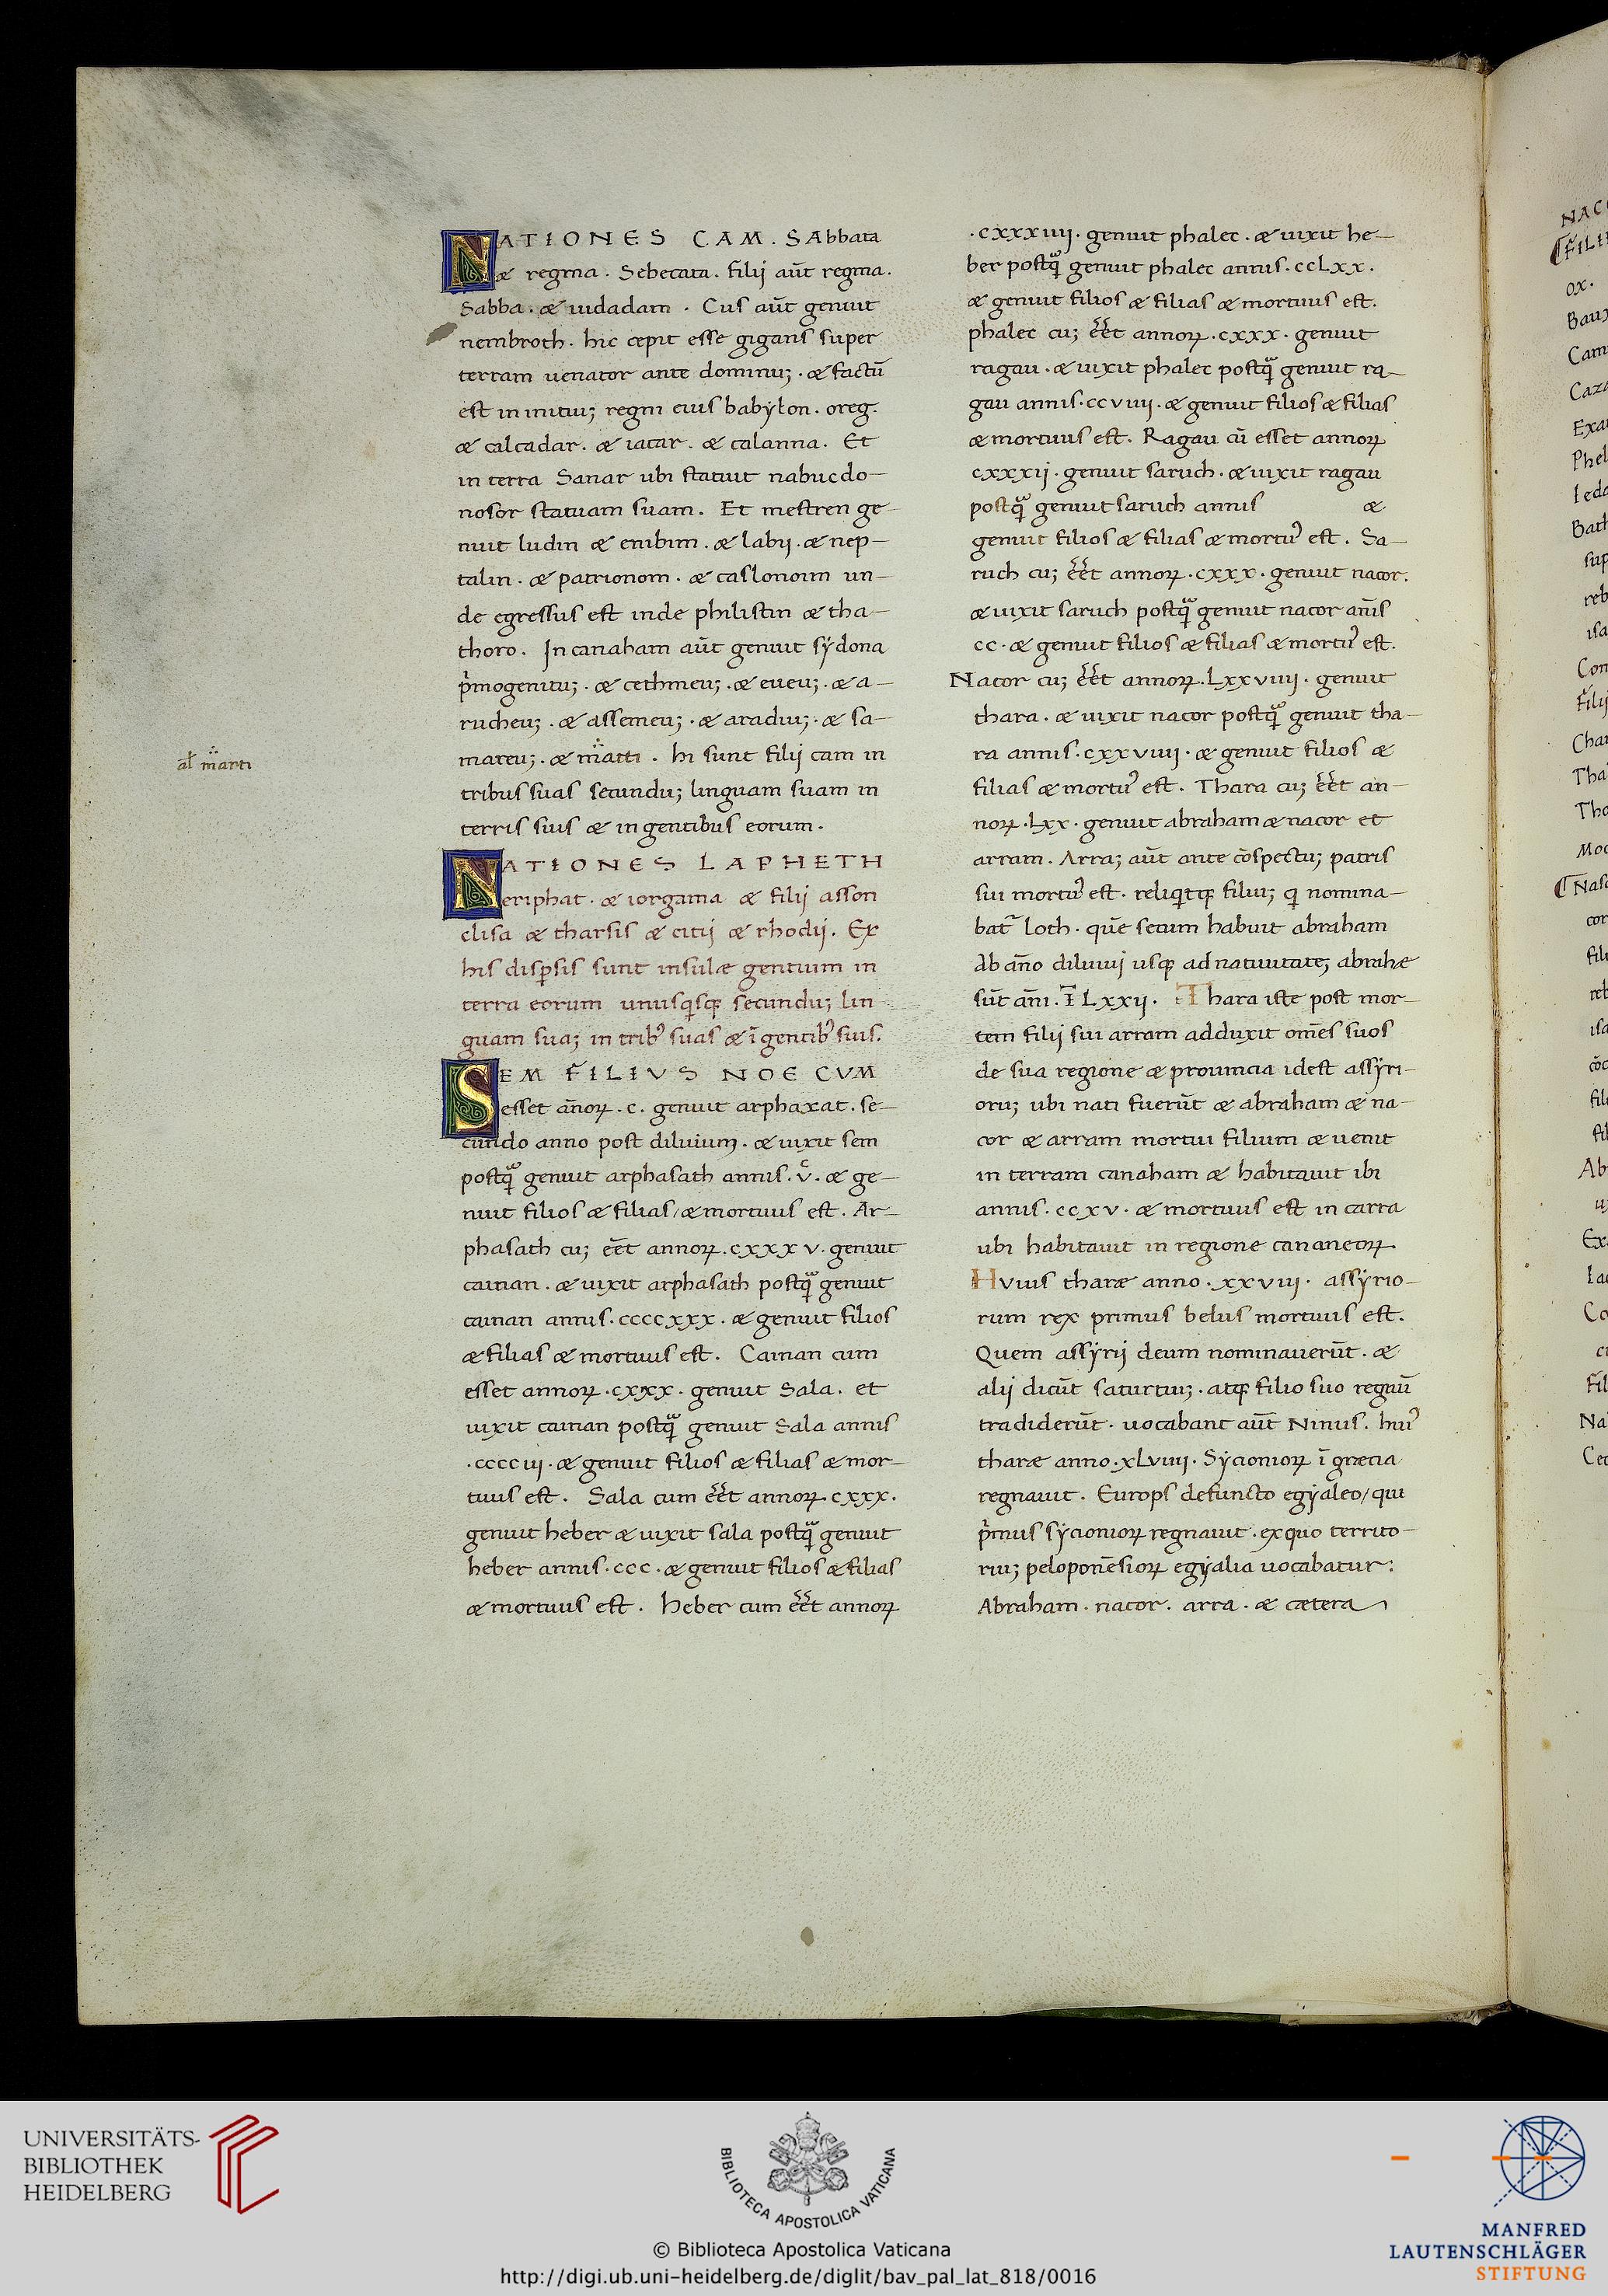 NATIONES CAM. SAbbata
æ regma. Sebecata. filij aūt regma.
Sabba. æ uidadam. Cus aūt genuit
nembroth. hic cepit esse gigans super
terram uenator ante dominuꝫ. æ factū
est in initiuꝫ regni eius babÿlon. oreg.
æ calcadar. æ iatar. æ calanna. Et
in terra Sanar ubi statuit nabucdo-
nosor statuam suam. Et mestren ge-
nuit ludin æ enibim. æ labij. æ nep-
talin. æ patrionom. æ caslonoim un-
de egressus est inde philistin æ tha-
thoro. In canaham aūt genuit sÿdona
p̄mogenituꝫ. æ cethmeuꝫ. æ eueuꝫ. æ a-
rucheuꝫ. æ assemeuꝫ. æ aradiuꝫ. æ sa-
mareuꝫ. æ m̄atti. hi sunt filij cam in
al̄ m̄arti
tribus suas secunduꝫ linguam suam in
terris suis æ in gentibus eorum.
NATIONES IAPHETH
eriphat. æ iorgama æ filij asson
elisa æ tharsis æ citij æ rhodij. Ex
his disꝑsis sunt insulæ gentium in
terra eorum unusqisqꝫ secunduꝫ lin
guam suaꝫ in trib᾽ suas æ ī gentib᾽ suis.
SEM FILIVS NOE CVM
esset an̄oꝝ. c. genuit arphaxat. se-
cundo anno post diluium. æ uixit sem
postq̄ genuit arphasath annis. v̊. æ ge-
nuit filios æ filias/æ mortuus est. Ar-
phasath cuꝫ ēet annoꝝ. cxxxv. genuit
cainan. æ uixit arphasath postq̄ genuit
cainan annis. ccccxxx. æ genuit filios
æ filias æ mortuus est. Cainan cum
esset annoꝝ. cxxx. genuit Sala. et
uixit cainan postq̄ genuit Sala annis
.cccciij. æ genuit filios æ filias æ mor-
tuus est. Sala cum ēet annoꝝ. cxxx.
genuit heber æ uixit sala postq̄ genuit
heber annis. ccc. æ genuit filios æ filias
æ mortuus est. Heber cum ēet annoꝝ
.cxxxiiij. genuit phalec. æ uixit he-
ber postq̄ genuit phalec annis. ccLxx.
æ genuit filios æ filias æ mortuus est.
phalec cuꝫ ēet annoꝝ. cxxx. genuit
ragau. æ uixit phalec postq̄ genuit ra-
gau annis. ccviiij. æ genuit filios æ filias
æ mortuus est. Ragau cū esset annoꝝ
cxxxij. genuit saruch. æ uixit ragau
postq̄ genuit saruch annis æ
genuit filios æ filias æ mortu᾽ est. Sa-
ruch cuꝫ ēet annoꝝ. cxxx. genuit nacor.
æ uixit saruch postq̄ genuit nacor an̄is
cc. æ genuit filios æ filias æ mortu᾽ est.
Nacor cuꝫ ēet annoꝝ. Lxxviiij. genuit
thara. æ uixit nacor postq̄ genuit tha-
ra annis. cxxviiij. æ genuit filios æ
filias æ mortu᾽ est. Thara cuꝫ ēet an-
noꝝ. Lxx. genuit abraham æ nacor et
arram. Arraꝫ aūt ante cōspectuꝫ patris
sui mortu᾽ est. reliqitqꝫ filiuꝫ qi nomina-
bat᾽ Loth. quē secum habuit abraham
Ab an̄o diluuij usqꝫ ad natiuitateꝫ abrahæ
sūt an̄i. Ī Lxxij. Thara iste post mor-
tem filij sui arram adduxit om̄es suos
de sua regione æ prouincia idest assÿri-
oruꝫ ubi nati fuerūt æ abraham æ na-
cor æ arram mortui filium æ uenit
in terram canaham æ habitauit ibi
annis. ccxv. æ mortuus est in carra
ubi habitauit in regione cananeoꝝ
HVius tharæ anno. xxviii. assÿrio-
rum rex primus belus mortuus est.
Quem assÿrij deum nominauerūt. æ
alij dicūt saturnuꝫ. atqꝫ filio suo regnū
tradiderūt. uocabant aūt Ninus. hui᾽
tharæ anno. xLviiij. Sÿcionioꝝ ī græcia
regnauit. Europs defuncto egÿaleo/qui
p̄mus sÿcionioꝝ regnauit. ex quo territo-
riuꝫ peloponēsioꝝ egÿalia uocabatur:
Abraham. nacor. arra. æ cætera
NAC
FILI
ox.
Baux
Cam
Caza
Exa
Phel
Ieda
Bath
sup
reb
isa
Con
Filij
Char
Tha
Tho
Moc
Nasc
cor
filu
reb
isa
cōc
fili
fil
Ab
Ex
Iac
Co
Fil
Na
Cec
UNIVERSITÄTS-
BIBLIOTHEK
HEIDELBERG
BIBLIOTECA APOSTOLICA VATICANA
© Biblioteca Apostolica Vaticana
http://digi.ub.uni-heidelberg.de/diglit/bav_pal_lat_818/0016
MANFRED
LAUTENSCHLÄGER
STIFTUNG